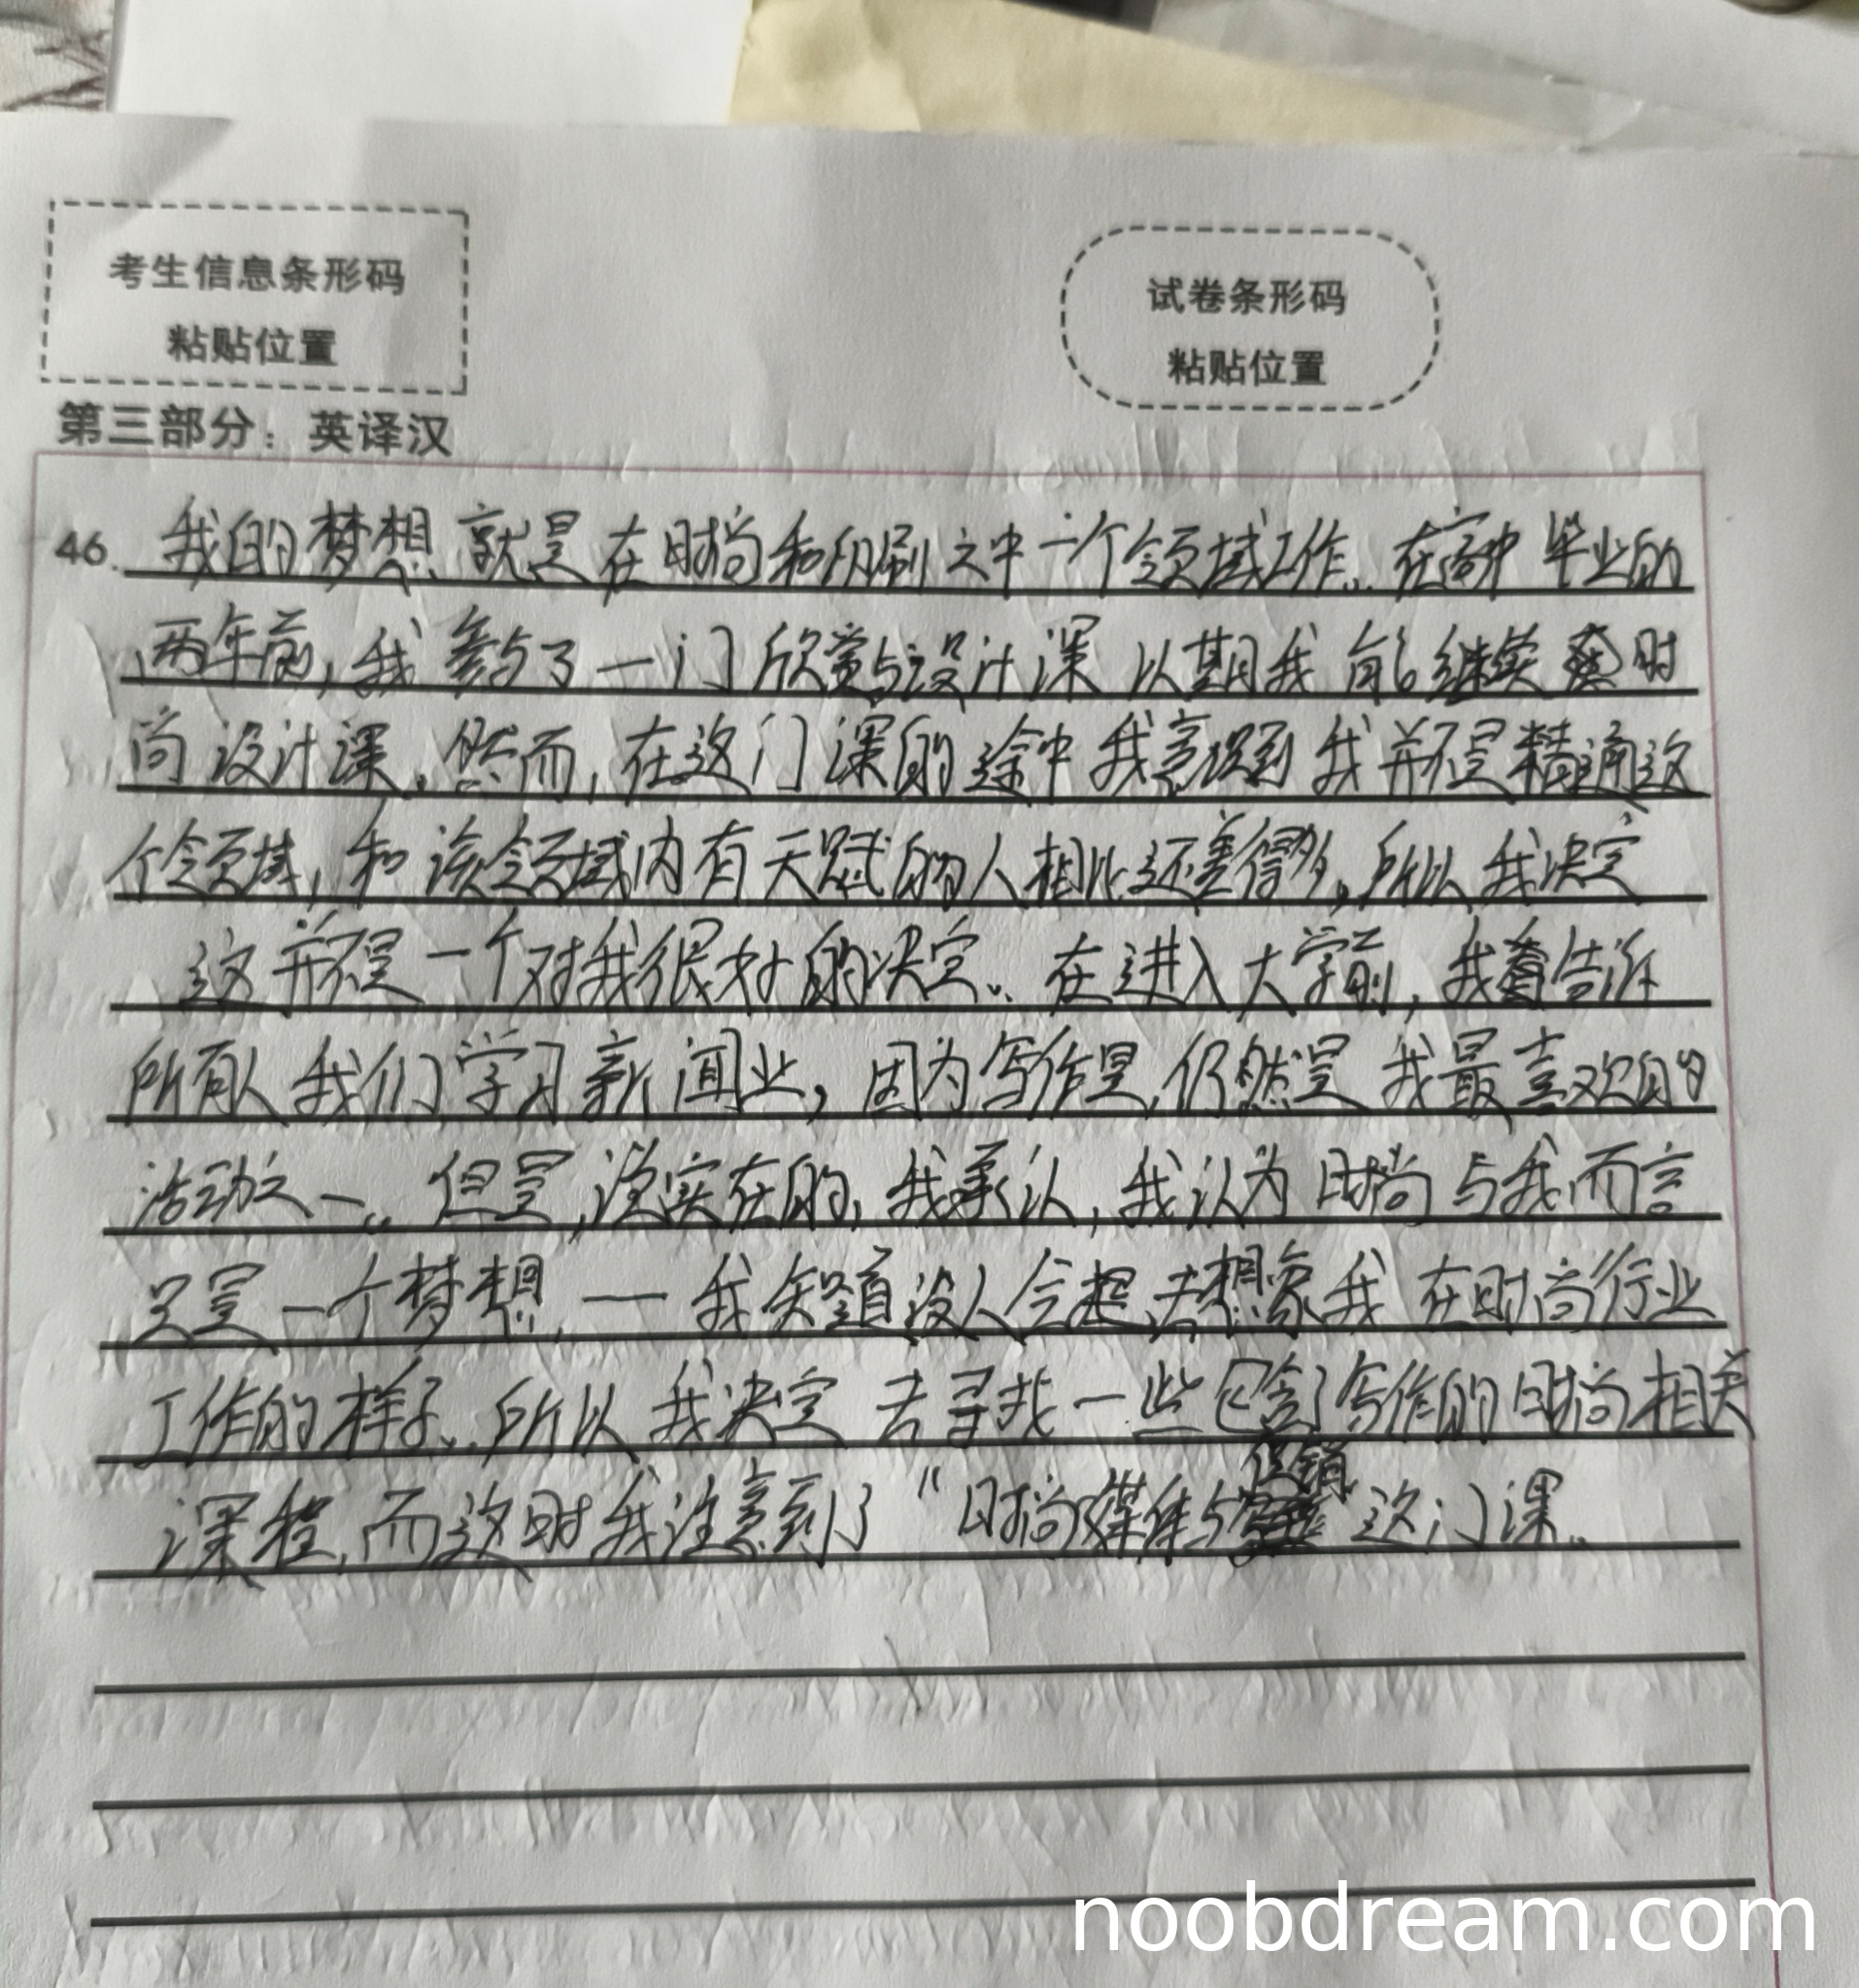 考生信息条形码
粘贴位置
试卷条形码
粘贴位置
第三部分：英译汉
46. 我的梦想就是在时尚和印刷之中一个领域工作。在高中毕业的
两年前，我参与了一门欣赏与设计课 以期我能继续 时
尚设计课。然而，在这门课的途中我意识到我并不是精通这
个领域，和该领域内有天赋的人相比还差得多，所以我决定
这并不是一个对我很好的决定。在进入大学前，我 告诉
所有人我们学习新闻业，因为写作是，仍然是我最喜欢的
活动之一。但是，说实在的，我承认，我认为时尚与我而言
只是一个梦想，一 我知道没人会 去想象我在时尚行业
工作的样子。所以我决定去寻找一些包含了写作的时尚相关
课程，而这时我注意到了"时尚媒体与促销 这门课。
noobdream.com